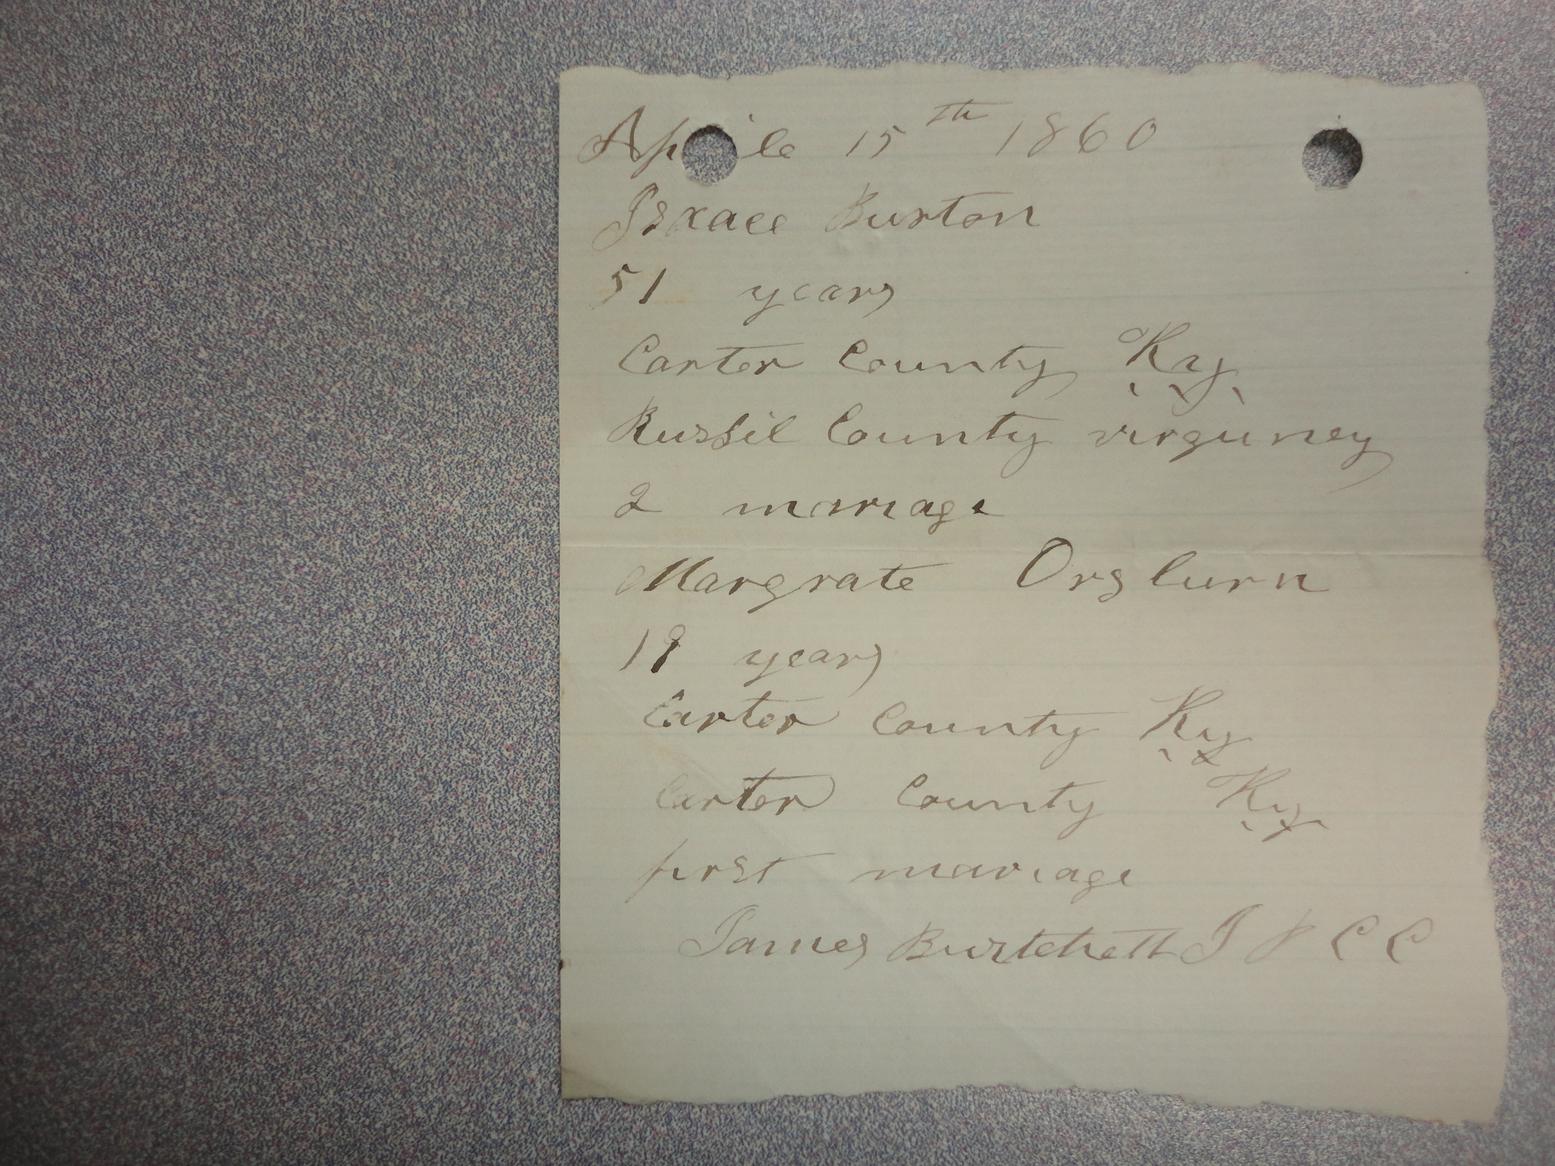 Ap le 15th 1860
Isxace Burton
51 years
Carter County Ky
Russil County virguney
2 mariage
Margrate Orsburn
years
Carter County Ky
Carter County Ky
first mariage
James Burtchett J P C C